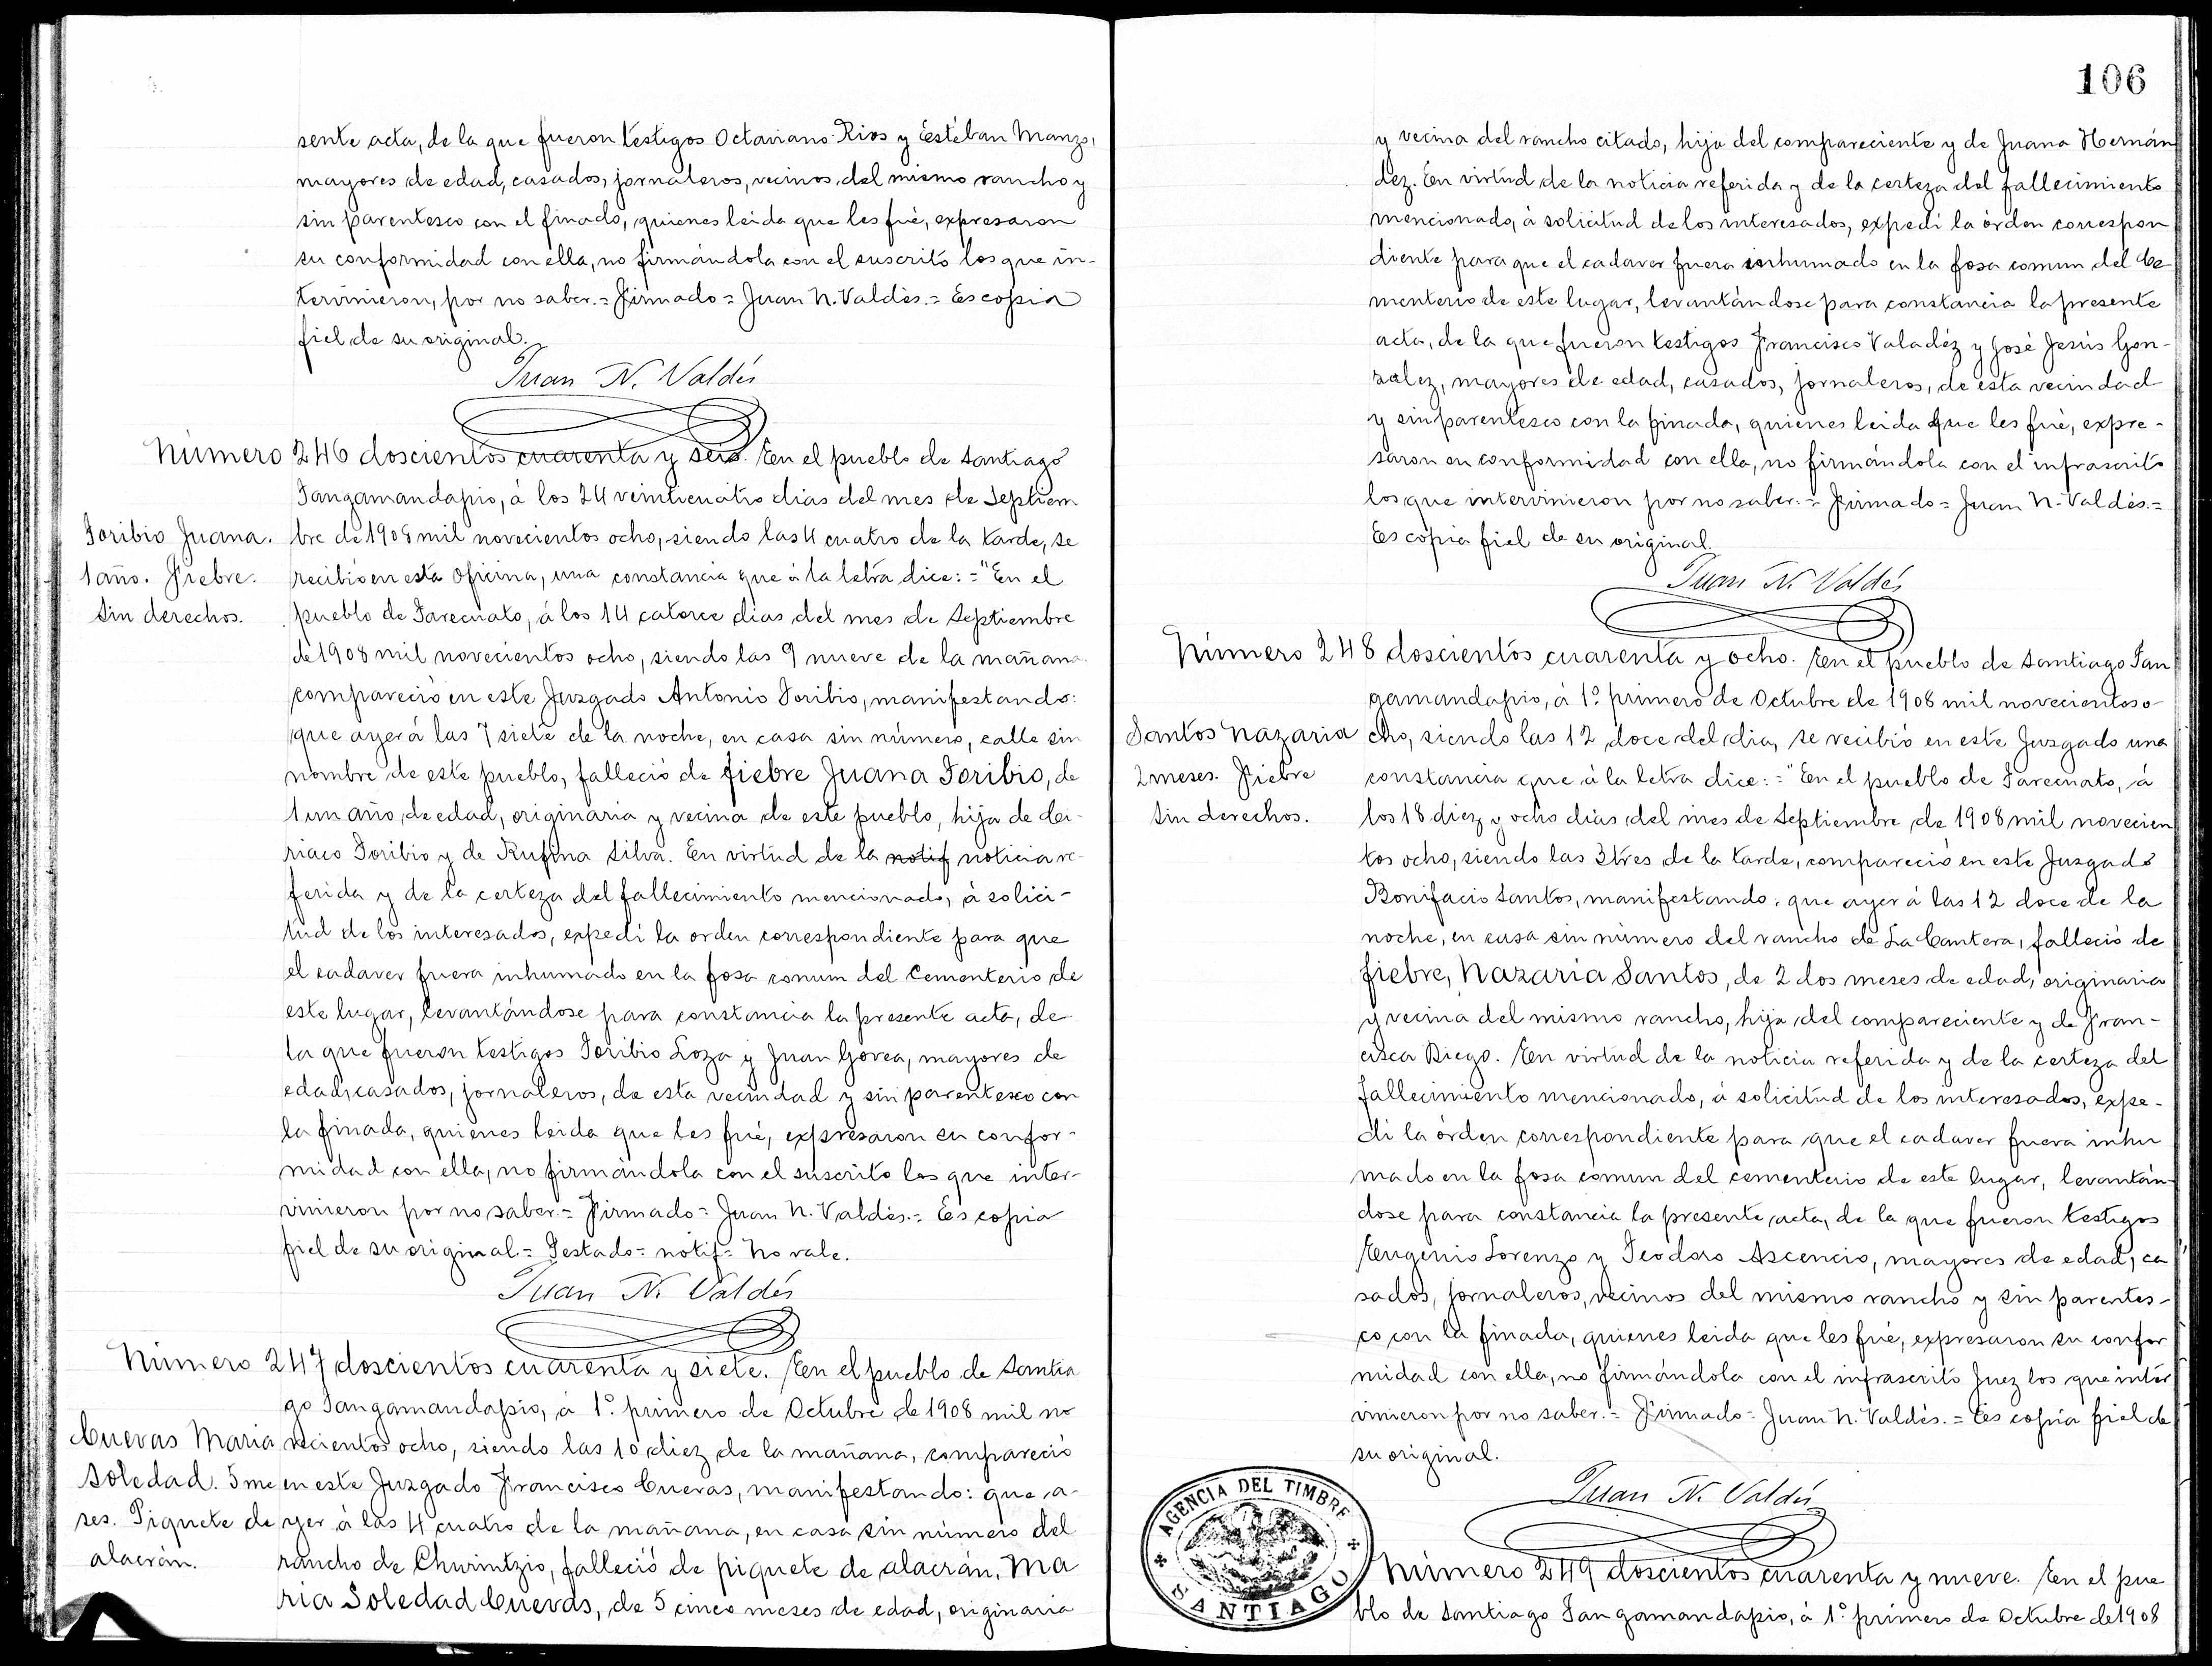 sente acta, de la que fueron testigos Octaviano Rios y Estéban Manzo,
mayores de edad, casados, jornaleros, vecinos del mismo rancho y
sin parentesco con el finado, quienes leida que les fué, expresaron
su conformidad con ella, no firmándola con el suscrito los que in-
tervinieron, por no saber.= Firmado= Juan N. Valdés.= Es copia
fiel de su original.
Juan N. Valdés
Número 246 doscientos cuarenta y seis. En el pueblo de Santiago
Tangamandapio, á los 24 veinticuatro dias del mes de Septiem
Toribio Juana.
1 año. Fiebre.
Sin derechos.
bre de 1908 mil novecientos ocho, siendo las 4 cuatro de la tarde, se
recibió en esta oficina, una constancia que á la letra dice:="En el
pueblo de Tarecuato, á los 14 catorce dias del mes de Septiembre
de 1908 mil novecientos ocho, siendo las 9 nueve de la mañana
compareció en este Juzgado Antonio Toribio, manifestando:
que ayer á las 7 siete de la noche, en casa sin número, calle sin
nombre de este pueblo, falleció de fiebre Juana Toribio, de
1 un año de edad, originaria y vecina de este pueblo, hija de Ci-
riaco Toribio y de Rufina Silva. En virtud de la notif noticia re-
ferida y de la certeza del fallecimiento mencionado, á solici-
tud de los interesados, expedí la orden correspondiente para que
el cadaver fuera inhumado en la fosa comun del Cementerio de
este lugar, levantándose para constancia la presente acta, de
la que fueron testigos Toribio Loza y Juan Govea, mayores de
edad, casados, jornaleros, de esta vecindad y sin parentesco con
la finada, quienes leida que les fué, expresaron su confor-
midad con ella, no firmándola con el suscrito los que inter-
vinieron por no saber.= Firmado= Juan N. Valdés.= Es copia
fiel de su original.= Testado= notif= No vale.
Juan N. Valdés
Número 247 doscientos cuarenta y siete. En el pueblo de Santia
go Tangamandapio, á 1º primero de Octubre de 1908 mil no
Cuevas Maria
Soledad. 5 me
ses. Piquete de
alacrán.
vecientos ocho, siendo las 10 diez de la mañana, compareció
en este Juzgado Francisco Cuevas, manifestando: que a-
yer á las 4 cuatro de la mañana, en casa sin número del
rancho de Churintzio, falleció de piquete de alacrán, Ma
ria Soledad Cuevas, de 5 cinco meses de edad, originaria
106
y vecina del rancho citado, hija del compareciente y de Juana Hernán
dez. En virtud de la noticia referida y de la certeza del fallecimiento
mencionado, á solicitud de los interesados, expedí la órden correspon
diente para que el cadaver fuera inhumado en la fosa comun del Ce
menterio de este lugar, levantándose para constancia la presente
acta, de la que fueron testigos Francisco Valadéz y José Jesús Gon-
zalez, mayores de edad, casados, jornaleros, de esta vecindad
y sin parentesco con la finada, quienes leida que les fué, expre-
saron su conformidad con ella, no firmándola con el infrascrito
los que intervinieron por no saber.= Firmado= Juan N. Valdés.=
Es copia fiel de su original.
Juan N. Valdés
Número 248 doscientos cuarenta y ocho. En el pueblo de Santiago Tan
gamandapio, á 1º primero de Octubre de 1908 mil novecientos o
Santos Nazaria
2 meses. Fiebre
Sin derechos.
cho, siendo las 12 doce del dia, se recibió en este Juzgado una
constancia que á la letra dice:="En el pueblo de Tarecuato, á
los 18 diez y ocho dias del mes de Septiembre de 1908 mil novecien
tos ocho, siendo las 3 tres de la tarde, compareció en este Juzgado
Bonifacio Santos, manifestando: que ayer á las 12 doce de la
noche, en casa sin número del rancho de La Cantera, falleció de
fiebre, Nazaria Santos, de 2 dos meses de edad, originaria
y vecina del mismo rancho, hija del compareciente y de Fran-
cisca Diego. En virtud de la noticia referida y de la certeza del
fallecimiento mencionado, á solicitud de los interesados, expe-
dí la órden correspondiente para que el cadaver fuera inhu
mado en la fosa comun del cementerio de este lugar, levantán-
dose para constancia la presente acta, de la que fueron testigos
Eugenio Lorenzo y Teodoro Ascencio, mayores de edad, ca
sados, jornaleros, vecinos del mismo rancho y sin parentes-
co con la finada, quienes leida que les fué, expresaron su confor
midad con ella, no firmándola con el infrascrito Juez los que inter
vinieron por no saber.= Firmado= Juan N. Valdés.= Es copia fiel de
su original.
Juan N. Valdés
AGENCIA DEL TIMBRE
SANTIAGO
Número 249 doscientos cuarenta y nueve. En el pue
blo de Santiago Tangamandapio, á 1º primero de Octubre de 1908